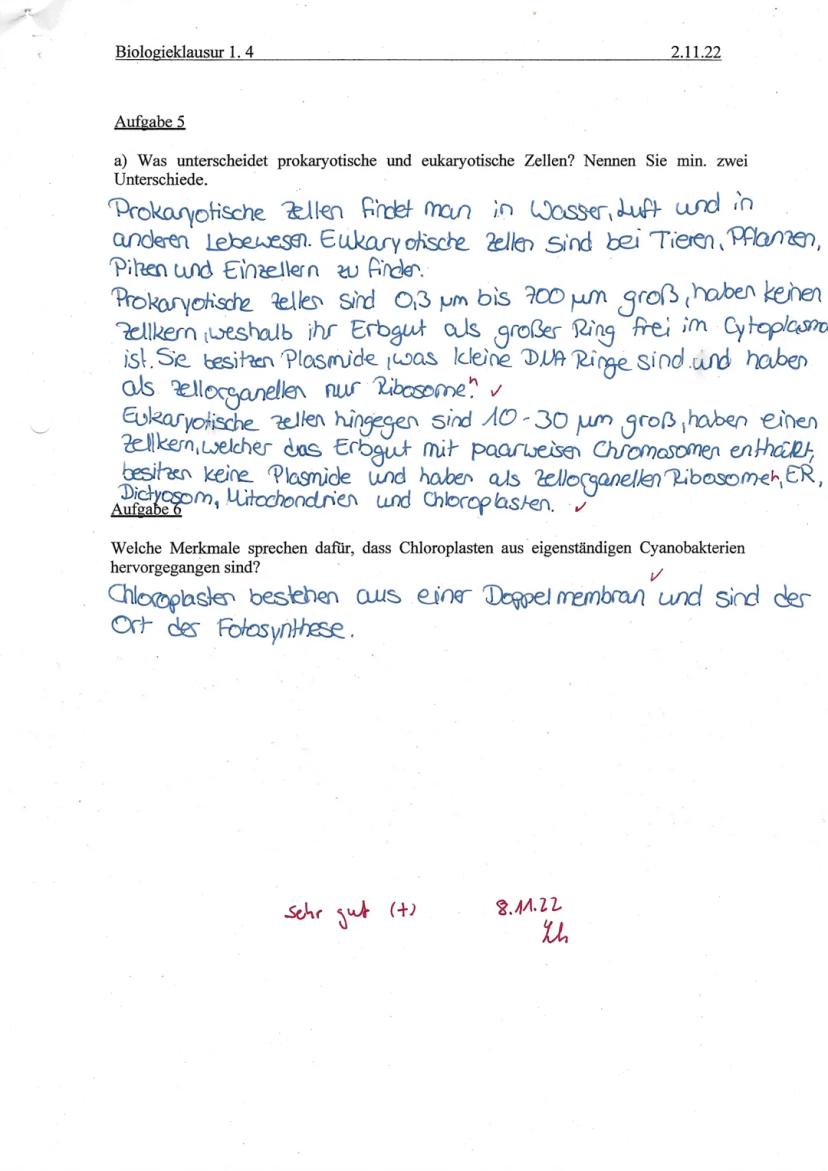 Biologieklausur 1. 4 2.11.22
Aufgabe 5
a) Was unterscheidet prokaryotische und eukaryotische Zellen? Nennen Sie min. zwei
Unterschiede.
Prokaryotische Zellen findet man in Wasser, Luft und in
anderen Lebewesen. Eukaryotische Zellen sind bei Tieren, Pflanzen,
Pilzen und Einzellern zu finden.
Prokaryotische Zellen sind 0,3 µm bis 700 µm groß, haben keinen
Zellkern, weshalb ihr Erbgut als großer Ring frei im Cytoplasma
ist. Sie besitzen Plasmide, was kleine DNA Ringe sind und haben
als Zellorganellen nur Ribosomen. ✓
Eukaryotische Zellen hingegen sind 10-30 µm groß, haben einen
Zellkern, welcher das Erbgut mit paarweisen Chromosomen enthält,
besitzen keine Plasmide und haben als Zellorganellen Ribosomen, ER,
Dictyosom, Mitochondrien und Chloroplasten. ✓
Aufgabe 6
Welche Merkmale sprechen dafür, dass Chloroplasten aus eigenständigen Cyanobakterien
hervorgegangen sind?
Chloroplasten bestehen aus einer Doppelmembran ✓ und sind der
Ort der Fotosynthese.
sehr gut (+) 8.11.22